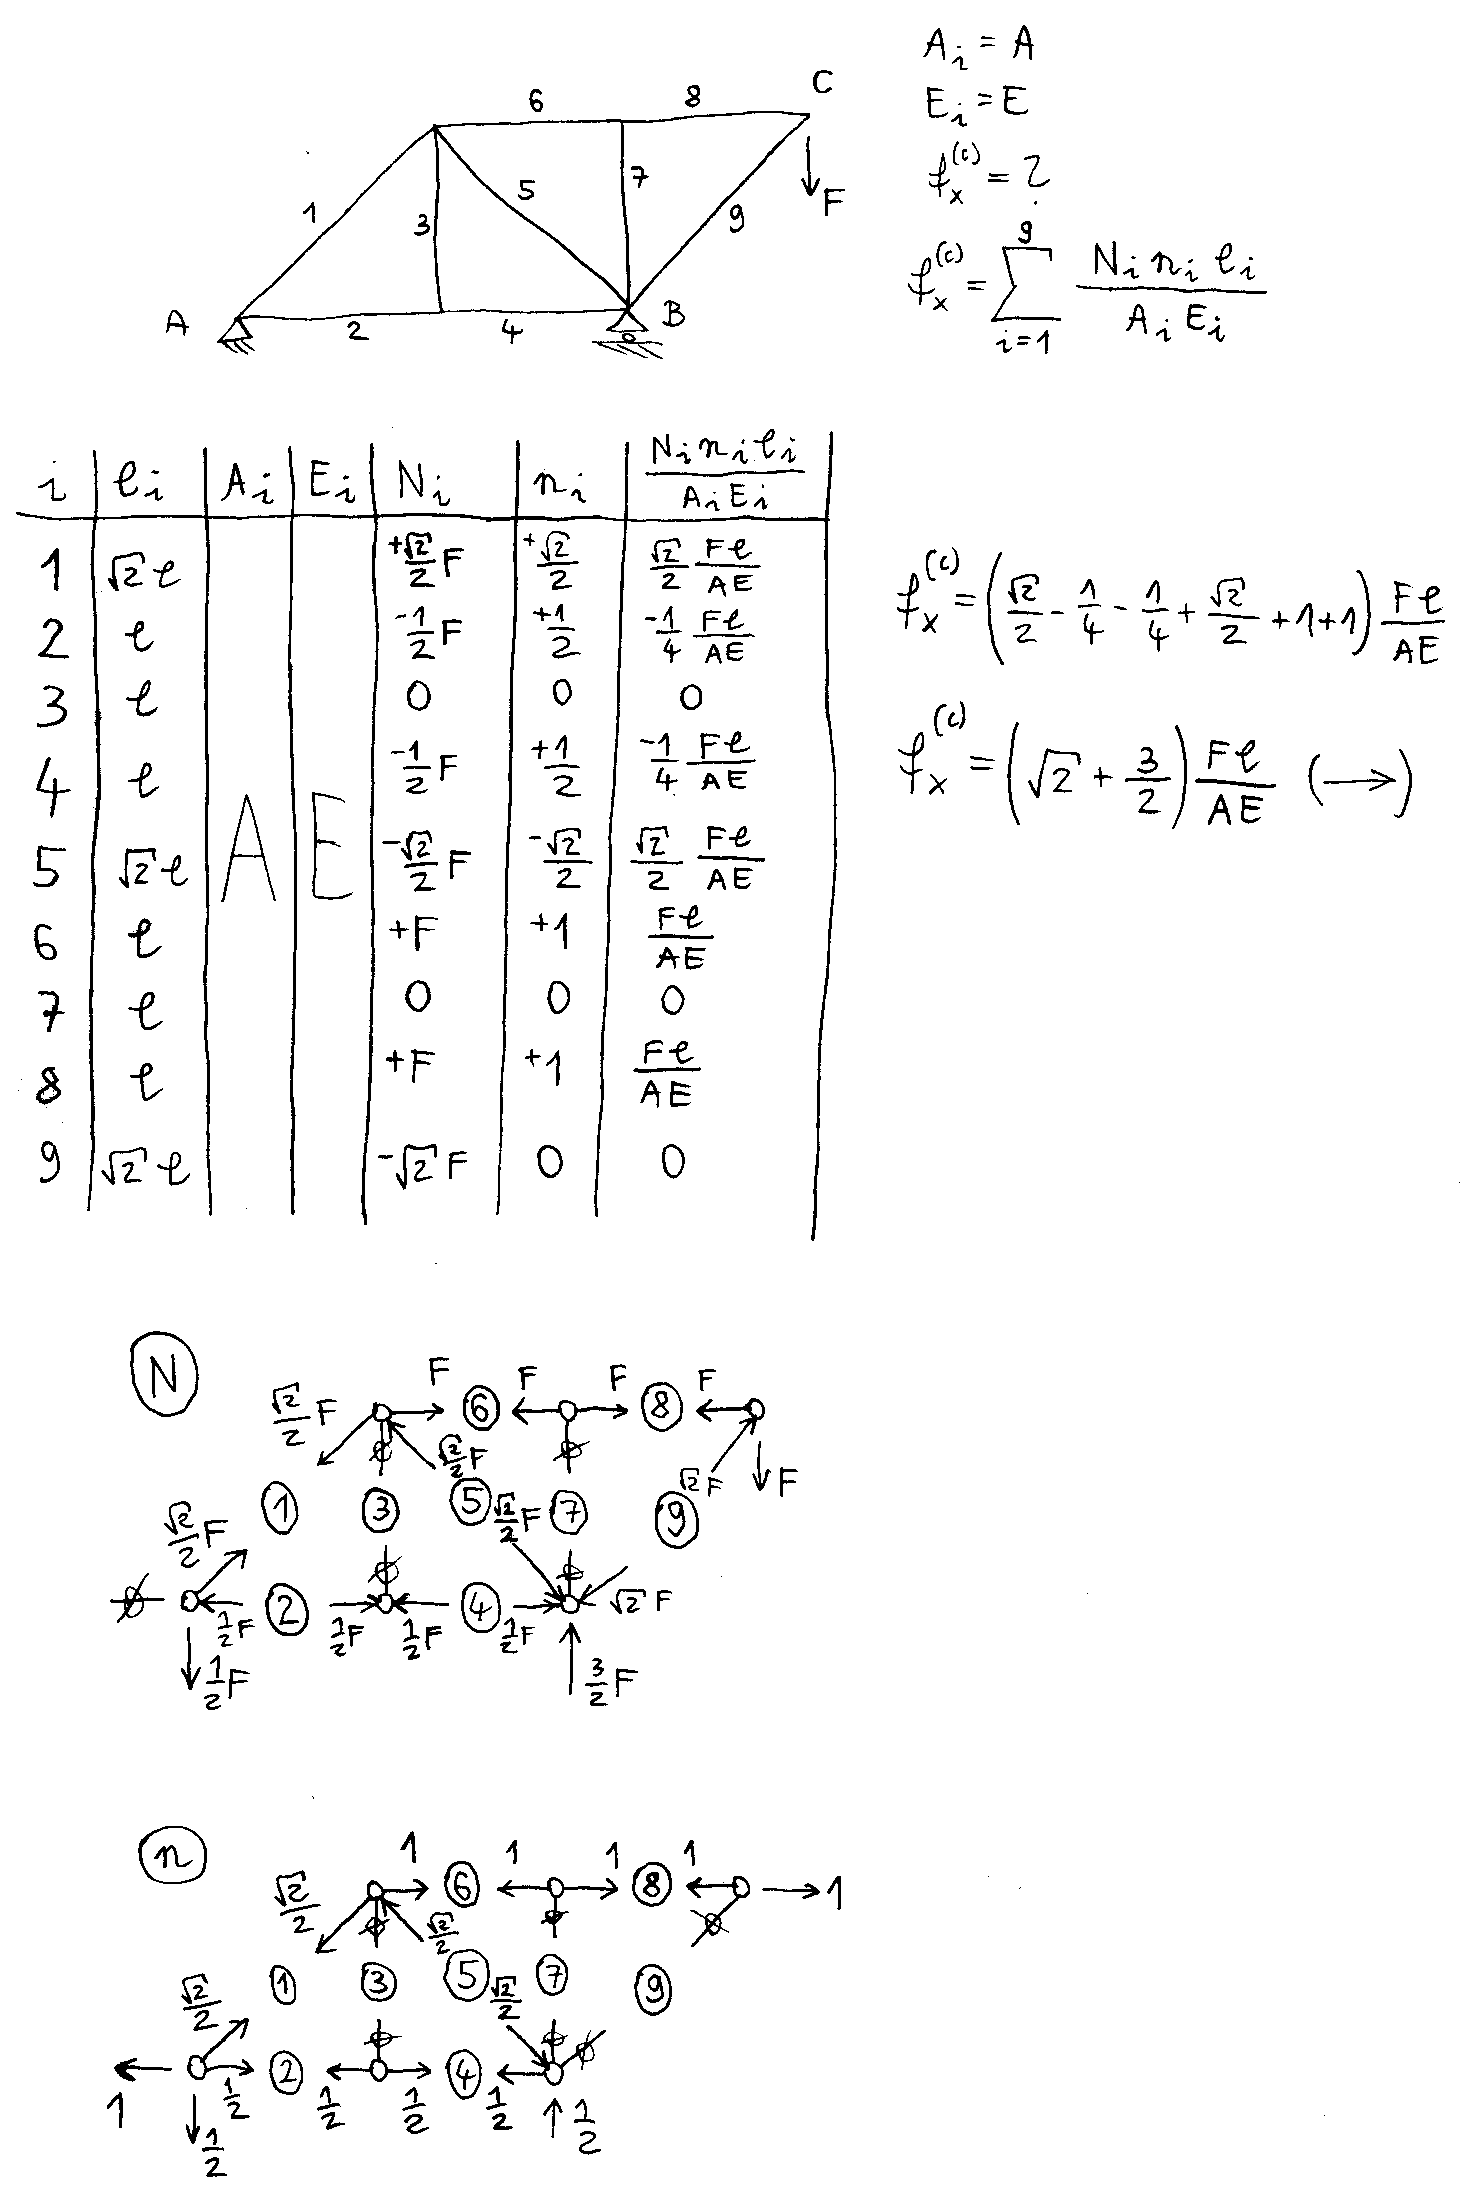 6 8 C
1 3 5 7 9 F
A 2 4 B
A_i = A
E_i = E
f_x^(c) = ?
f_x^(c) = Σ_{i=1}^{9} N_i n_i ℓ_i / A_i E_i
i | ℓ_i | A_i | E_i | N_i | n_i | N_i n_i ℓ_i / A_i E_i
1 | √2 ℓ | | | +√2/2 F | +√2/2 | √2/2 Fℓ/AE
2 | ℓ | | | -1/2 F | +1/2 | -1/4 Fℓ/AE
3 | ℓ | | | 0 | 0 | 0
4 | ℓ | | | -1/2 F | +1/2 | -1/4 Fℓ/AE
5 | √2 ℓ | A | E | -√2/2 F | -√2/2 | √2/2 Fℓ/AE
6 | ℓ | | | +F | +1 | Fℓ/AE
7 | ℓ | | | 0 | 0 | 0
8 | ℓ | | | +F | +1 | Fℓ/AE
9 | √2 ℓ | | | -√2 F | 0 | 0
f_x^(c) = (√2/2 - 1/4 - 1/4 + √2/2 + 1 + 1) Fℓ/AE
f_x^(c) = (√2 + 3/2) Fℓ/AE (→)
N
√2/2 F F 6 F F 8 F
∅ √2/2 F ∅ √2 F F
√2/2 F 1 3 5 √2/2 F 7 9
∅ ∅ ∅
1/2 F 2 1/2 F 1/2 F 4 1/2 F √2 F
1/2 F 3/2 F
n
√2/2 1 6 1 1 8 1 1
∅ √2/2 ∅ ∅
√2/2 1 3 5 √2/2 7 9
∅ ∅ ∅
1 1/2 2 1/2 1/2 4 1/2
1/2 1/2